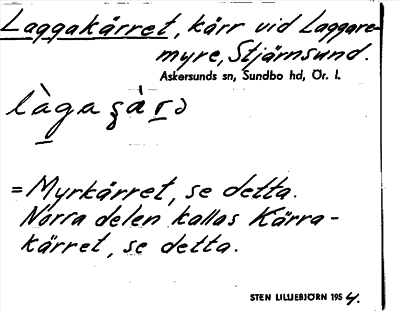 Laggakärret, kärr vid Laggare-
myre, Stjärnsund.
Askersunds sn, Sundbo hd, Ör. l.
= Myrkärret, se detta.
Norra delen kallas Kärra-
kärret, se detta.
STEN LILLIEBJÖRN 1954.